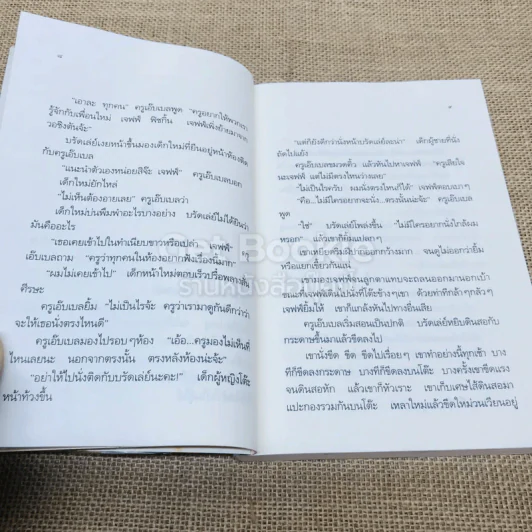 "เอาละ ทุกคน" ครูเอ๊บเบลพูด "ครูอยากให้พวกเรา
รู้จักกับเพื่อนใหม่ เจฟฟ์ ฟิชกิ้น เจฟฟ์เพิ่งย้ายมาจาก
วอชิงตันจ้ะ"
บรัดเล่ย์เงยหน้าขึ้นมองเด็กใหม่ที่ยืนอยู่หน้าห้องติด
กับครูเอ๊บเบล
"แนะนำตัวเองหน่อยสิจ๊ะ เจฟฟ์" ครูเอ๊บเบลบอก
เด็กใหม่ยักไหล่
"ไม่เห็นต้องอายเลย" ครูเอ๊บเบลว่า
เด็กใหม่บ่นพึมพำอะไรบางอย่าง บรัดเล่ย์ไม่ได้ยินว่า
มันคืออะไร
"เธอเคยเข้าไปในทำเนียบขาวหรือเปล่า เจฟฟ์"
เอ๊บเบลถาม "ครูว่าทุกคนในห้องอยากฟังเรื่องนี้มาก"
"ผมไม่เคยเข้าไป" เด็กหน้าใหม่ตอบเร็วปรื๋อพลาง
ศีรษะ
ครูเอ๊บเบลยิ้ม "ไม่เป็นไรจ้ะ ครูว่าเรามาดูกันดีกว่าว่า
จะให้เธอนั่งตรงไหนดี"
ครูเอ๊บเบลมองไปรอบๆห้อง "เอ้อ...ครูมองไม่เห็นที่
ไหนเลยนะ นอกจากตรงนั้น ตรงหลังห้องน่ะจ้ะ"
"อย่าให้ไปนั่งติดกับบรัดเล่ย์นะคะ!" เด็กผู้หญิงโต๊ะ
หน้าท้วงขึ้น
"แต่ก็ยังดีกว่านั่งหน้าบรัดเล่ย์ละน่า" เด็กผู้ชายที่นั่ง
ถัดไปแย้ง
ครูเอ๊บเบลขมวดคิ้ว แล้วหันไปหาเจฟฟ์ "ครูเสียใจ
นะเจฟฟ์ แต่ไม่มีตรงไหนว่างเลย"
"ไม่เป็นไรครับ ผมนั่งตรงไหนก็ได้" เจฟฟ์ตอบเบาๆ
"คือ...ไม่มีใครอยากจะนั่ง...ตรงนั้นน่ะจ้ะ" ครูเอ๊บเบล
พูด
"ใช่" บรัดเล่ย์โพล่งขึ้น "ไม่มีใครอยากนั่งใกล้ผม
หรอก" แล้วเขาก็ยิ้มแปลกๆ
เขาเหยียดริมฝีปากออกกว้างมาก จนดูไม่ออกว่ายิ้ม
หรือแยกเขี้ยวกันแน่
เขามองเจฟฟ์จนลูกตาแทบจะถลนออกมานอกเบ้า
ขณะที่เจฟฟ์เดินไปนั่งที่โต๊ะข้างๆเขา ด้วยท่าทีกล้าๆกลัวๆ
เจฟฟ์ยิ้มให้ เขาก็แกล้งหันไปทางอื่นเสีย
ครูเอ๊บเบลเริ่มสอนเป็นปกติ บรัดเล่ย์หยิบดินสอกับ
กระดาษขึ้นมาแล้วขีดลงไป
เขานั่งขีด ขีด ขีดไปเรื่อยๆ เขาทำอย่างนี้ทุกเช้า บาง
ทีก็ขีดลงกระดาษ บางทีก็ขีดลงบนโต๊ะ บางครั้งเขาขีดแรง
จนดินสอหัก แล้วเขาก็หัวเราะ เขาเก็บเศษไส้ดินสอมา
แปะกองรวมกันบนโต๊ะ เหลาใหม่แล้วขีดใหม่วนเวียนอยู่
Get Books